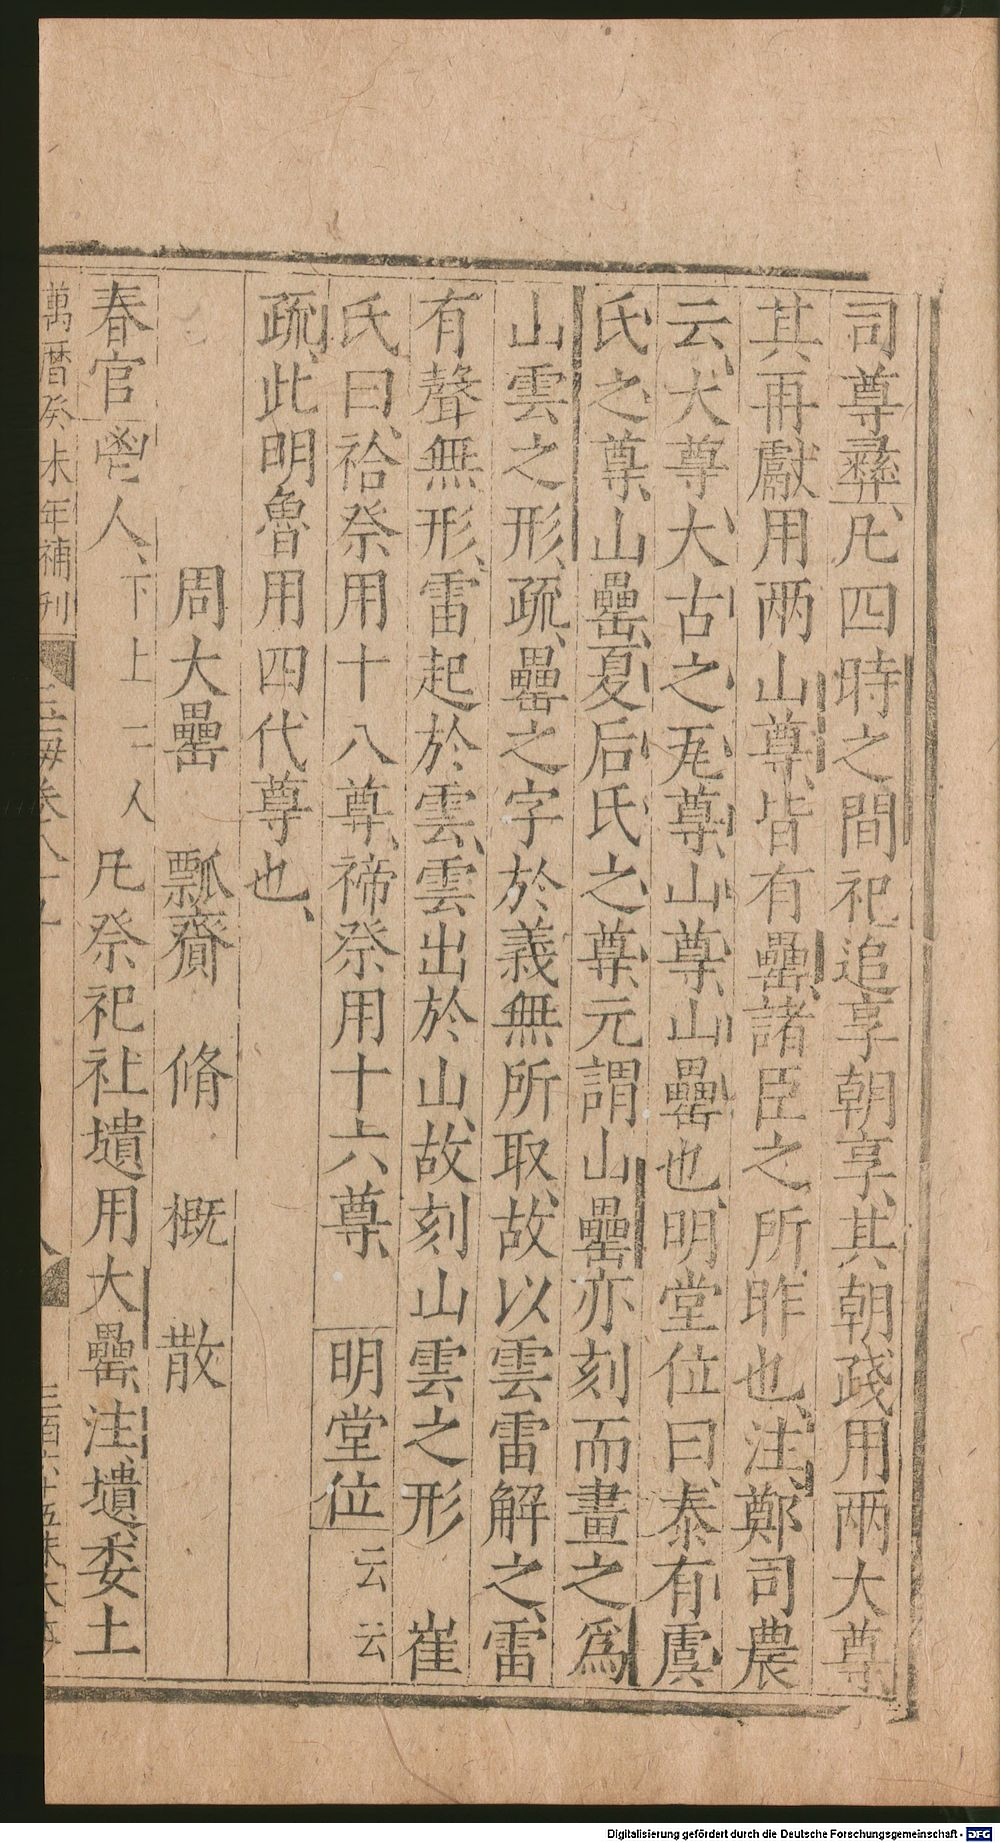 司尊彝、凡四時之間祀追享朝享、其朝踐用兩大尊
其再獻用兩山尊、皆有罍、諸臣之所昨也、注、鄭司農
云、大尊、大古之瓦尊、山尊、山罍也、明堂位曰、泰有虞
氏之尊、山罍、夏后氏之尊、元謂山罍亦刻而畫之爲
山雲之形、疏、罍之字於義無所取、故以雲雷解之、雷
有聲無形、雷起於雲、雲出於山、故刻山雲之形 崔
氏曰、祫祭用十八尊、禘祭用十六尊、 明堂位 云云
疏、此明魯用四代尊也、
周大罍 瓢齎 脩 概 散
春官鬯人、下士二人 凡祭祀社壝用大罍、注、壝、委土
萬曆癸未年補刊